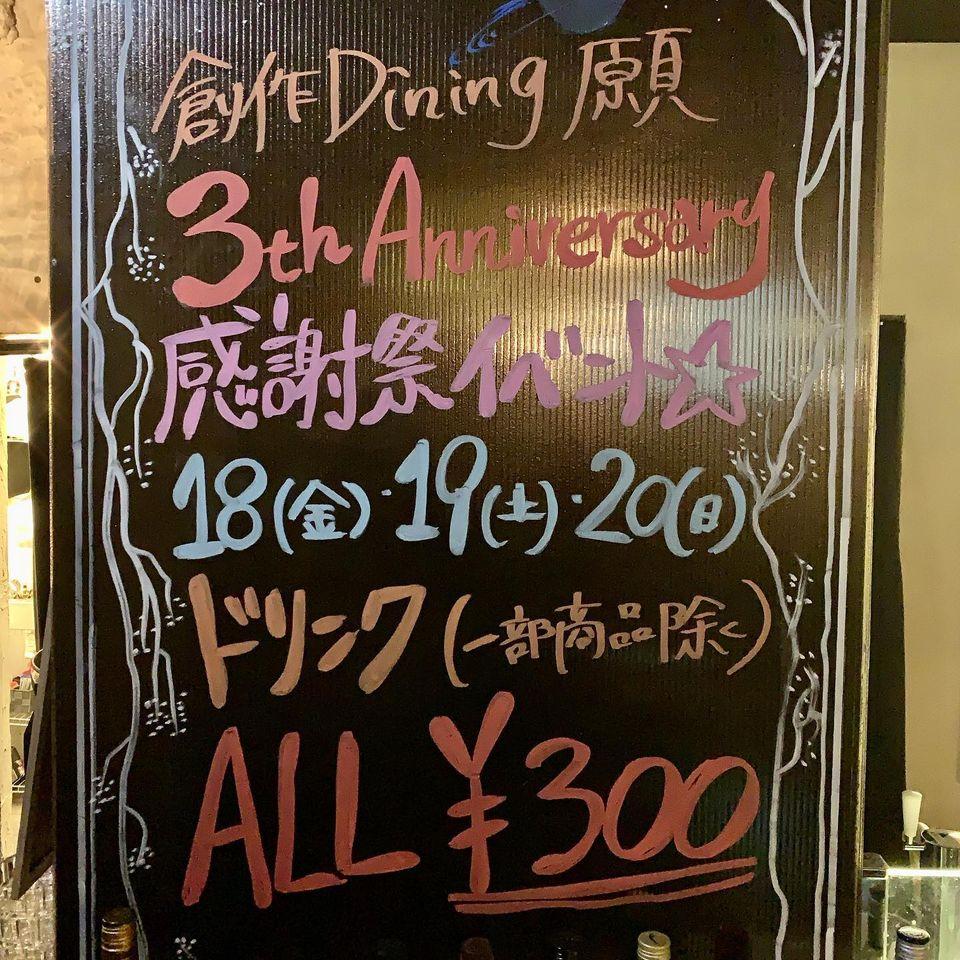 創作Dining 願
3th Anniversary
感謝祭イベント☆
18(金)・19(土)・20(日)
ドリンク(一部商品除く)
ALL ¥300